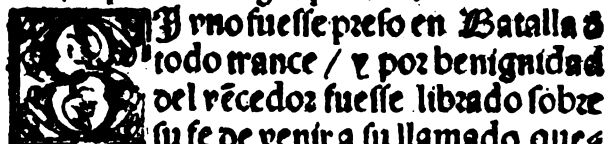 SI vno fueſſe preſo en Batalla d
todo trance / y por benignidad
del vēcedor fueſſe librado ſobre
ſu fe de venir a ſu llamado